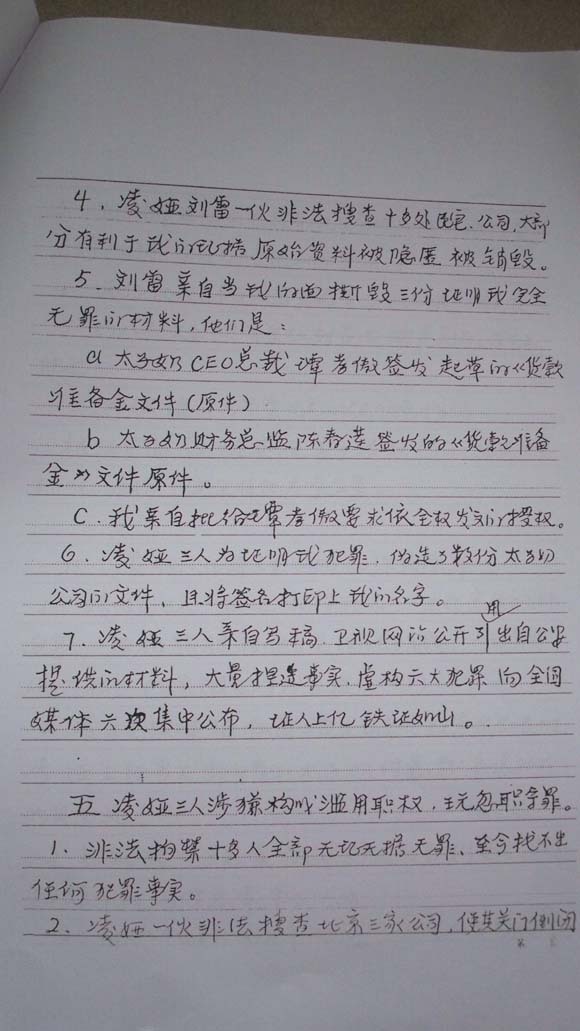 4、凌娅刘雷一伙非法搜查十多处民宅、公司,大部
分有利于我的证据原始资料被隐匿被销毁。
5、刘雷亲自当我的面撕毁三份证明我完全
无罪的材料,他们是:
a 太子奶CEO总裁谭孝傲签发起草的《货款
准备金文件(原件)
b 太子奶财务总监陈春莲签发的《货款准备
金》文件原件。
C.我亲自批给谭孝傲要求依全权发文的授权。
6、凌娅三人为证明我犯罪,伪造了数份太子奶
公司的文件,且将签名打印上我的名字。
7、凌娅三人亲自写稿,卫视网站公开引用出自公安
提供的材料,大量捏造事实,虚构六大犯罪向全国
媒体六次集中公布,证人上亿铁证如山。
五 凌娅三人涉嫌构成滥用职权,玩忽职守罪。
1、非法拘禁十多人全部无证无据无罪、至今找不出
任何犯罪事实。
2、凌娅一伙非法搜查北京三家公司,使其关门倒闭